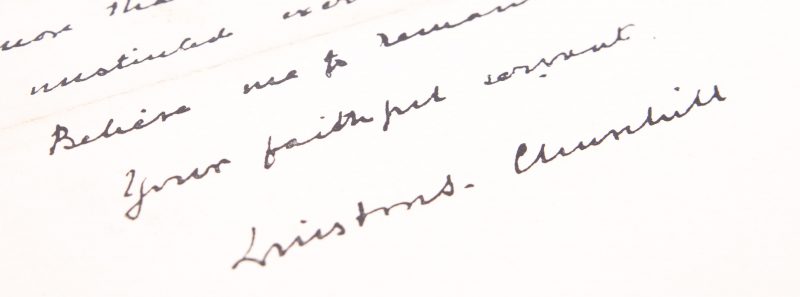 more tha
unstinted exer
Believe me to remain
Your faithful servant.
Winston S. Churchill